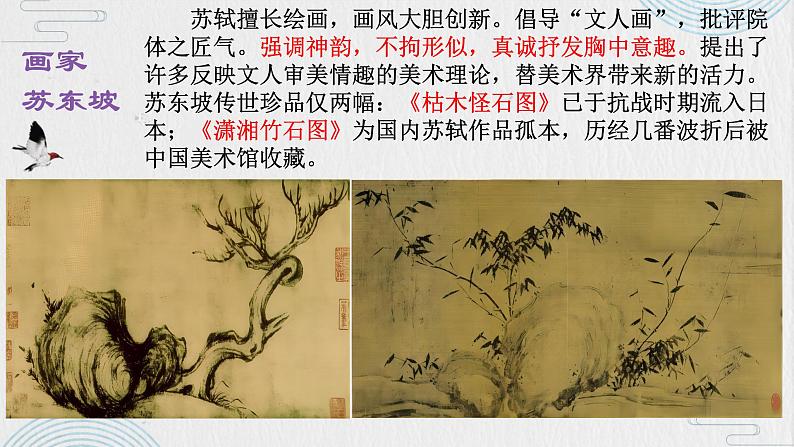 画家
苏东坡
苏轼擅长绘画，画风大胆创新。倡导“文人画”，批评院
体之匠气。强调神韵，不拘形似，真诚抒发胸中意趣。提出了
许多反映文人审美情趣的美术理论，替美术界带来新的活力。
苏东坡传世珍品仅两幅：《枯木怪石图》已于抗战时期流入日
本；《潇湘竹石图》为国内苏轼作品孤本，历经几番波折后被
中国美术馆收藏。